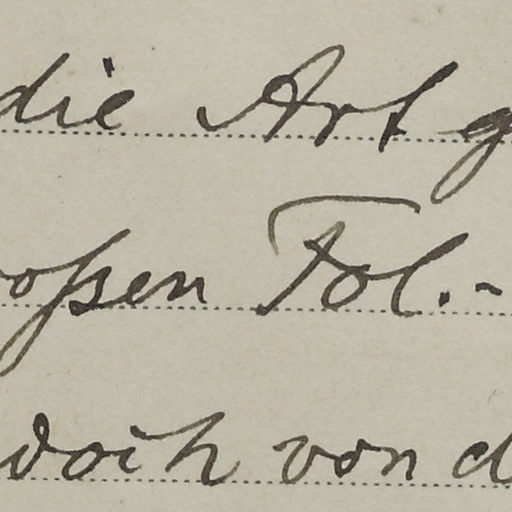 die Art g
roßen Fol.-
doch von d